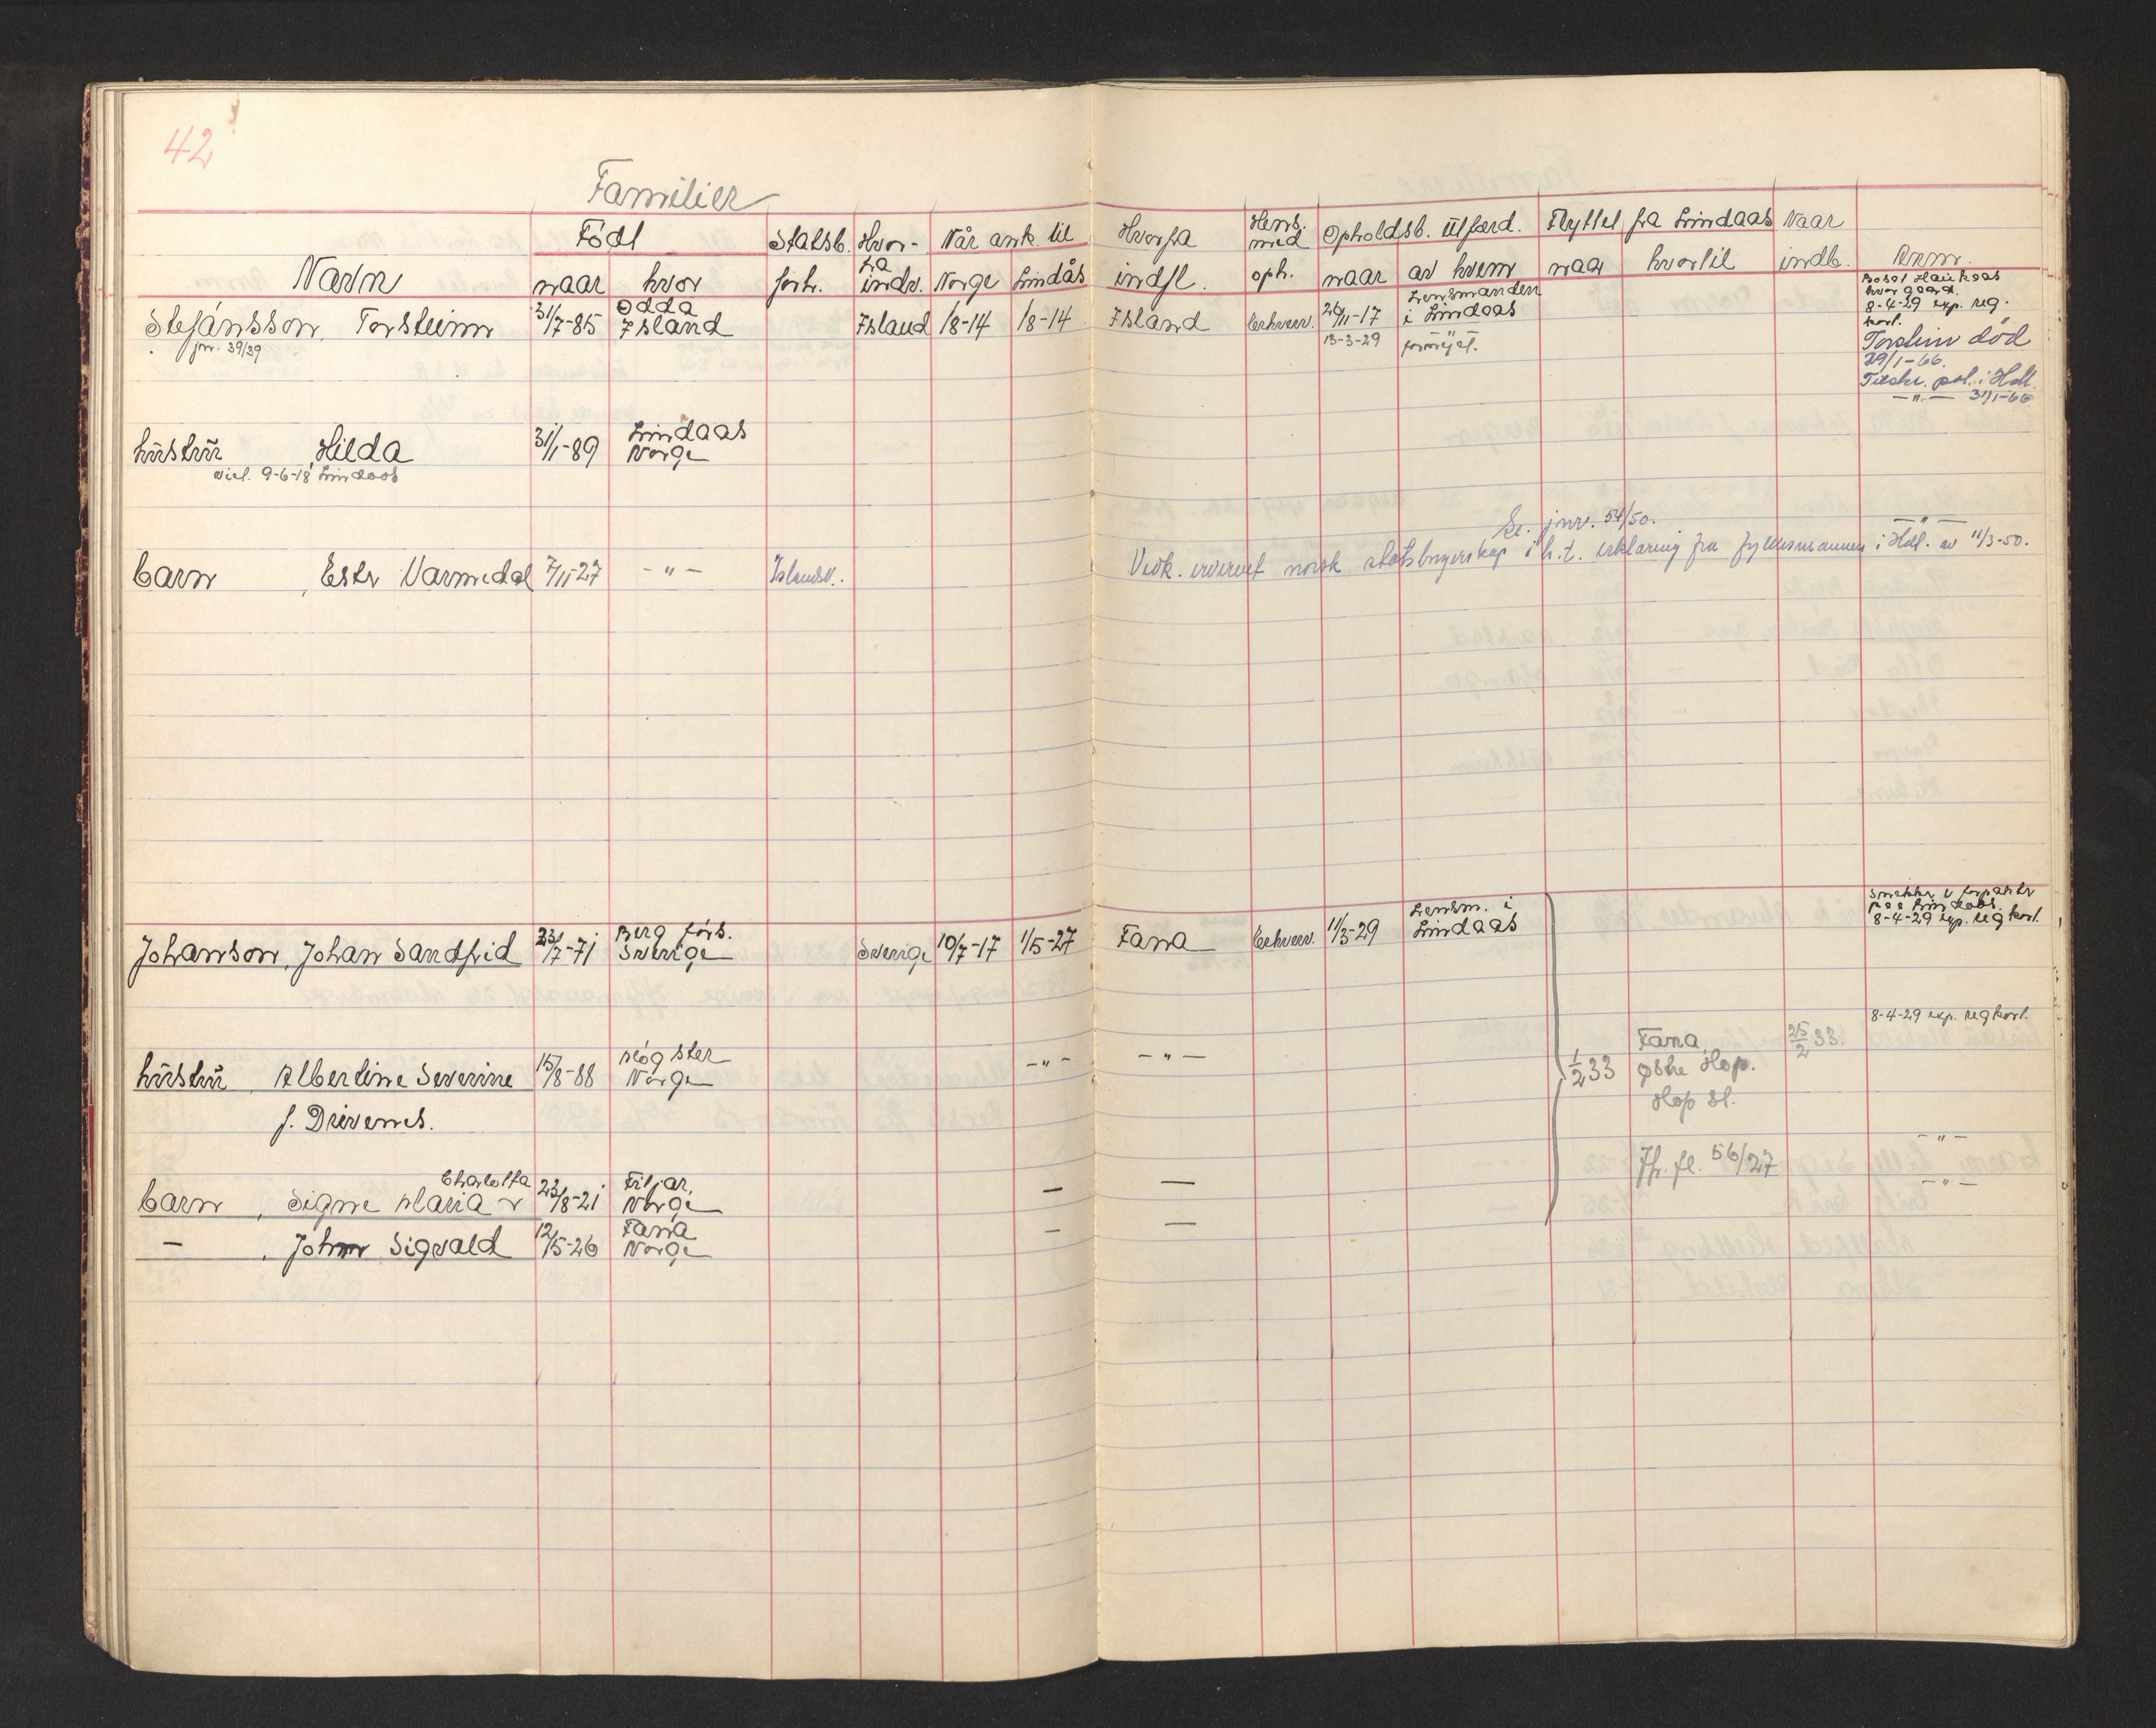 42
Familier
Født Statsb. Hvor- Når ank. til Hvorfra Hens. med Opholdsb. utfærd. Flyttet fra Lindaas Naar
Navn naar hvor forh. fra indv. Norge Lindås indfl. oph. naar av hvem naar hvortil indb. Anm.
Stefánsson, Torsteinn 31/7-85 Odda Island Island 1/8-14 1/8-14 Island Erhverv. 26/11-17 Lensmanden i Lindaas
jnr. 39/39
13-3-29 fornyet.
Bosat
8-4-29 exp. reg.
kort.
Torstein død
29/1-66.
pol. i Hdl.
-"- 31/1-66
hustru, Hilda 31/1-89 Lindaas Norge
viet. 9-6-18 Lindaas
Se. jnr. 54/50.
-"-
barn, Ester Varmedal 7/11-27 -"- Islandsk. Vedk. ervervet norsk statsborgerskap i h.t. erklæring fra fylkesmannen i Hdl. av 11/3-50.
Johanson, Johan Sandfrid 23/7-71 Berg förs. Sverige Sverige 10/7-17 1/5-27 Fana Erhverv. 11/3-29 Lensm. i Lindaas
8-4-29 exp. reg kort.
8-4-29 exp. reg kort.
hustru, Albertine Severine 15/8-88 Møgster Norge -"- -"- 1/2 33 Fana, Østre Hop. Hop st. 25/2 33.
f. Drivenes.
-"-
Jfr. fl. 56/27
Charlotta
barn, Signe Maria v 23/8-21 Fitjar, Norge — — -"-
— , John Sigvald 12/5-26 Fana Norge — —